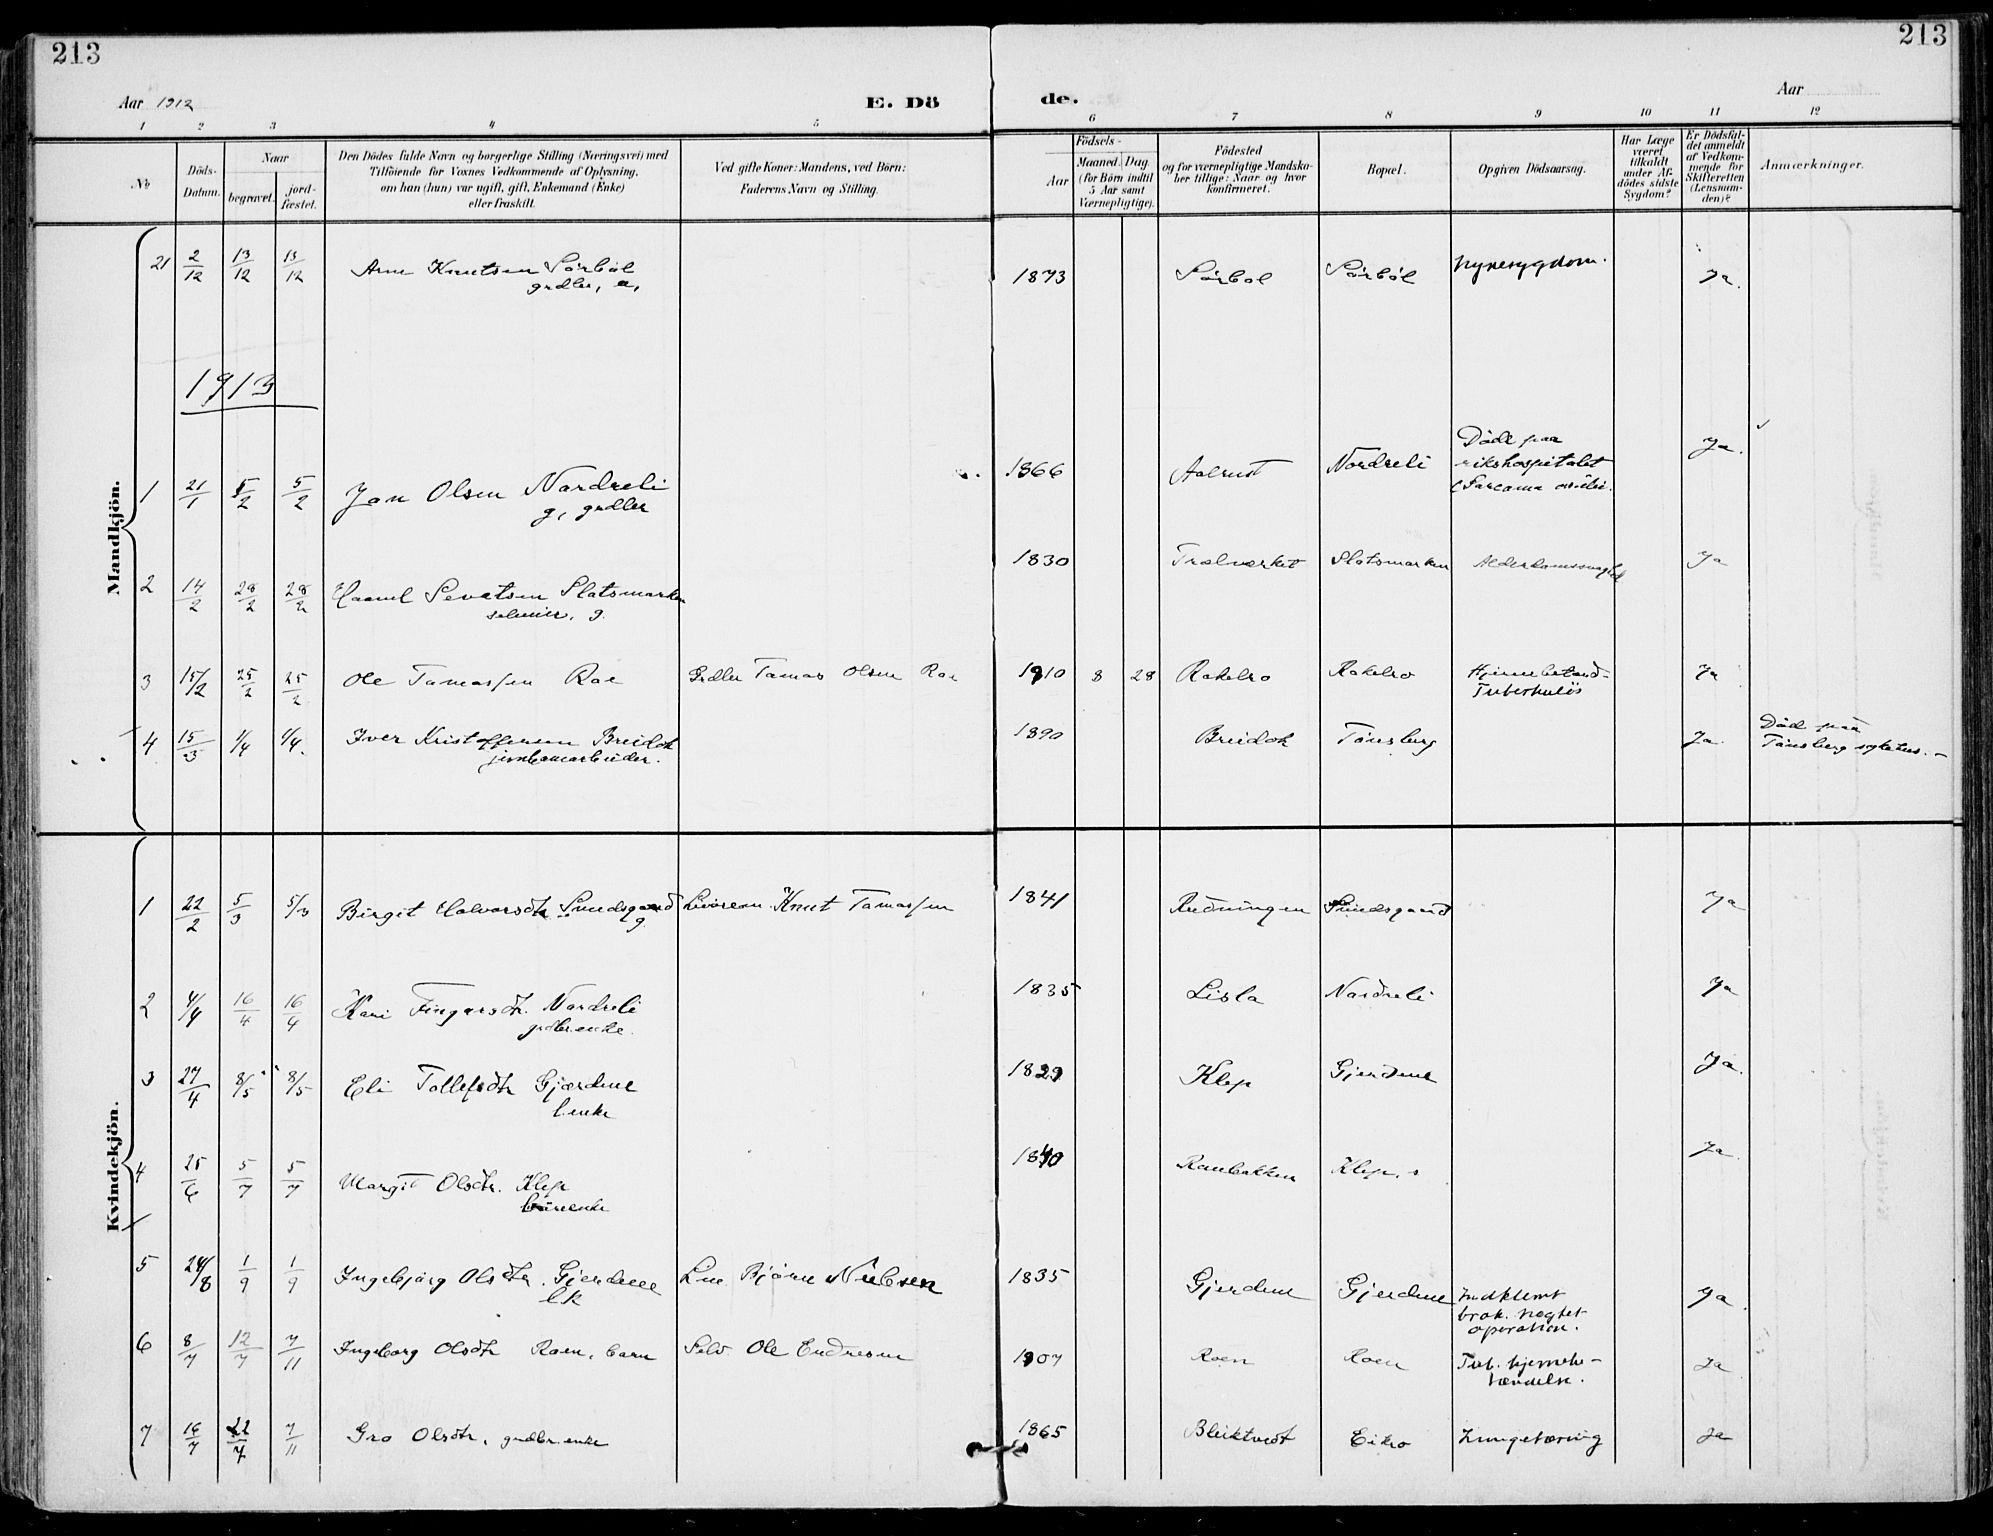 213
213
Aar 1912
E. Dö
de.
Aar
1 2 3 4 5 6 7 8 9 10 11 12
No
Döds-
Datum.
Naar
begravet.
jord-
fæstet.
Den Dödes fulde Navn og borgerlige Stilling (Næringsvei) med
Tilföiende for Voxnes Vedkommende af Oplysning,
om han (hun) var ugift, gift, Enkemand (Enke)
eller fraskilt.
Ved gifte Koner: Mandens, ved Børn:
Faderens Navn og Stilling.
Födsels-
Aar
Maaned. Dag.
(for Börn indtil
5 Aar samt
Værnepligtige).
Födested
og for værnepligtige Mandska-
ber tillige: Naar og hvor
konfirmeret.
Bopæl.
Opgiven Dödsaarsag.
Har Læge
været
tilkaldt
under Af-
dödes sidste
Sygdom?
Er Dödsfal-
det anmeldt
af Vedkom-
mende for
Skifteretten
(Lensman-
den)?
Anmærkninger.
Mandkjön.
21 2/12 13/12 13/12 Arne Knutsen Sørbøl 1873 Sørbøl Sørbøl Nyresygdom. Ja.
grdbr, e,
1913
1 21/1 5/2 5/2 Jon Olsen Nordreli 1866 Aalrust Nordreli Døde paa Ja.
g, grdbr rikshospitalet
2 14/2 28/2 28/2 Sevatsen Slatsmarken 1830 Trælverket Slatsmarken Alderdomssvaghet Ja
g.
3 15/2 25/2 25/2 Ole Tomassen Roe Grdbr Tomas Olsen Roe 1910 8 28 Rokelro Rokelro Ja
Tuberkuløs
4 15/3 1/4 1/4. Iver Kristoffersen Breidok 1890 Breidok Tønsberg Ja. Død paa
jernbanearbeider. Tønsberg sykehus.-
Kvindekjön.
1 22/2 5/3 5/3 Birgit Halvorsdtr. Sundsgaard Knut Tomassen 1841 Rudningen Sundsgaard Ja
g
2 4/4 16/4 16/4 Kari Fingarsdtr. Nordreli 1835 Lisla Nordreli Ja
grdbr.enke.
3 27/4 8/5 8/5 Eli Tollefsdtr Gjerdene 1829 Klep Gjerdene Ja.
l.enke
4 25/6 5/7 5/7 Margit Olsdtr. Klep 1840 Raubakken Klep. Ja.
5 24/8 1/9 1/9 Ingebjørg Olsdtr. Gjerdene Lm. Bjørn Nielsen 1835 Gjerdene Gjerdene Indklemt Ja.
lk brok. Negtet
operation.
6 8/7 12/7 7/11 Ingeborg Olsdtr Roen, barn Selv. Ole Endresen 1907 Roen Roen Tub. hjernebe- Ja
tændelse.
7 16/7 22/7 7/11 Gro Olsdtr, grdbr.enke 1865 Bleiktvedt Eikro Lungetæring Ja